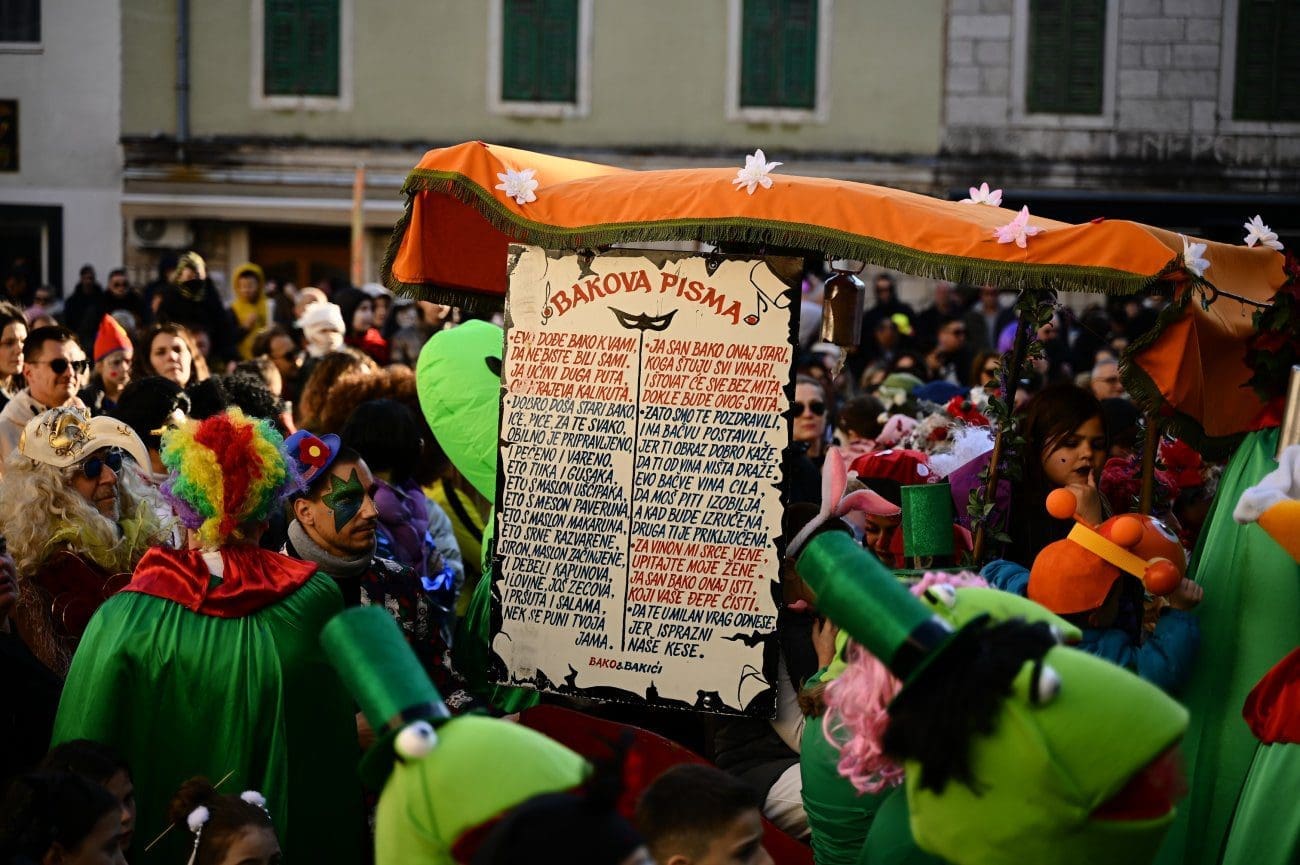 BAKOVA PISMA
• EVO DOĐE BAKO K VAMI,
DA NE BISTE BILI SAMI,
JA UČINI DUGA PUTA,
KALIKUTA.
• DOBRO DOŠA STARI BAKO,
IĆE, PIĆE ZA TE SVAKO.
OBILNO JE PRIPRAVLJENO,
PEČENO I VARENO.
ETO TUKA I GUSAKA,
ETO S MASLON UŠĆIPAKA,
ETO S MESON PAVERUNA,
ETO S MASLON MAKARUNA,
ETO SRNE RAZVARENE,
SIRON, MASLON ZAČINJENE,
I DEBELI KAPUNOVA,
I LOVINE, JOŠ ZECOVA,
I PRŠUTA I SALAMA,
NEK SE PUNI TVOJA
JAMA.
• JA SAN BAKO ONAJ STARI,
KOGA ŠTUJU SVI VINARI,
I ŠTOVAT ĆE SVE BEZ MITA,
DOKLE BUDE OVOG SVITA.
• ZATO SMO TE POZDRAVILI,
INA BAČVU POSTAVILI,
JER TI OBRAZ DOBRO KAŽE,
DA TI OD VINA NIŠTA DRAŽE,
EVO BAČVE VINA CILA,
DA MOŠ PITI IZOBILJA,
A KAD BUDE IZRUČENA,
DRUGA TI JE PRIKLJUČENA.
• ZA VINON MI SRCE VENE,
UPITAJTE MOJE ŽENE.
JA SAN BAKO ONAJ ISTI,
KOJI VAŠE ĐEPE ČISTI.
• DA TE UMILAN VRAG ODNESE
JER ISPRAZNI
NAŠE KESE.
BAKO & BAKIĆI